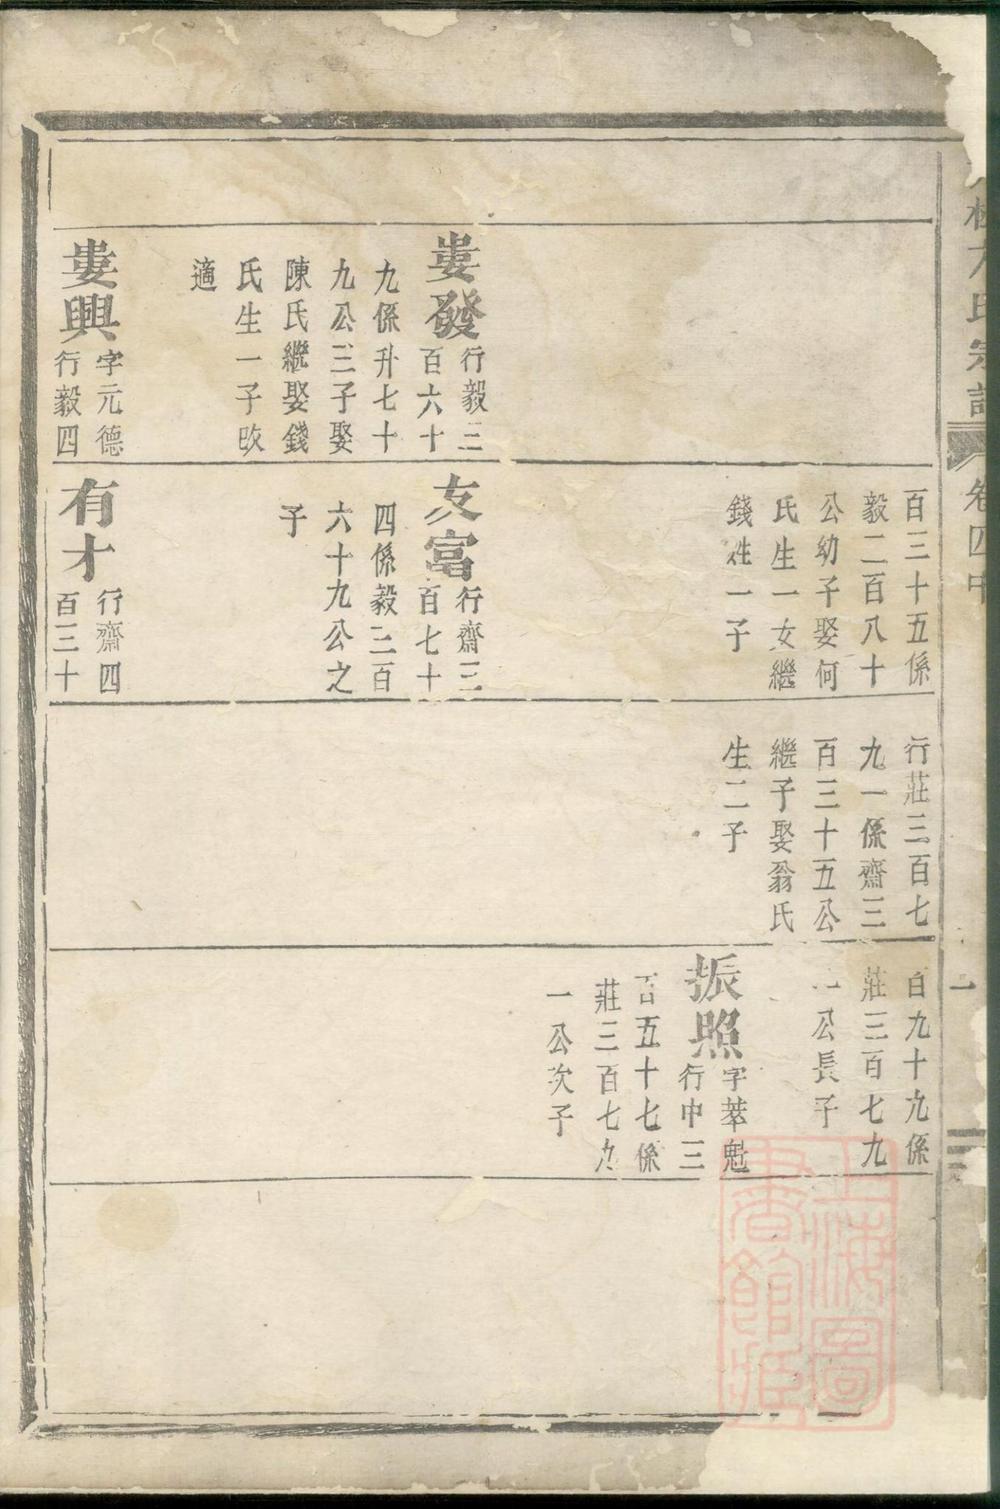 方氏宗譜
卷四中
一
婁發
行毅三
百六十
九係升七十
九公三子娶
陳氏繼娶錢
氏生一子改
適
婁興
字元德
行毅四
百三十五係
毅二百八十
公幼子娶何
氏生一女繼
錢姓一子
友富
行齋三
百七十
四係毅三百
六十九公之
子
有才
行齋四
百三十
行莊三百七
九一係齋三
百三十五公
繼子娶翁氏
生二子
百九十九係
莊三百七九
一公長子
振照
字萃魁
行中三
百五十七係
莊三百七九
一公次子
上海圖
書館藏